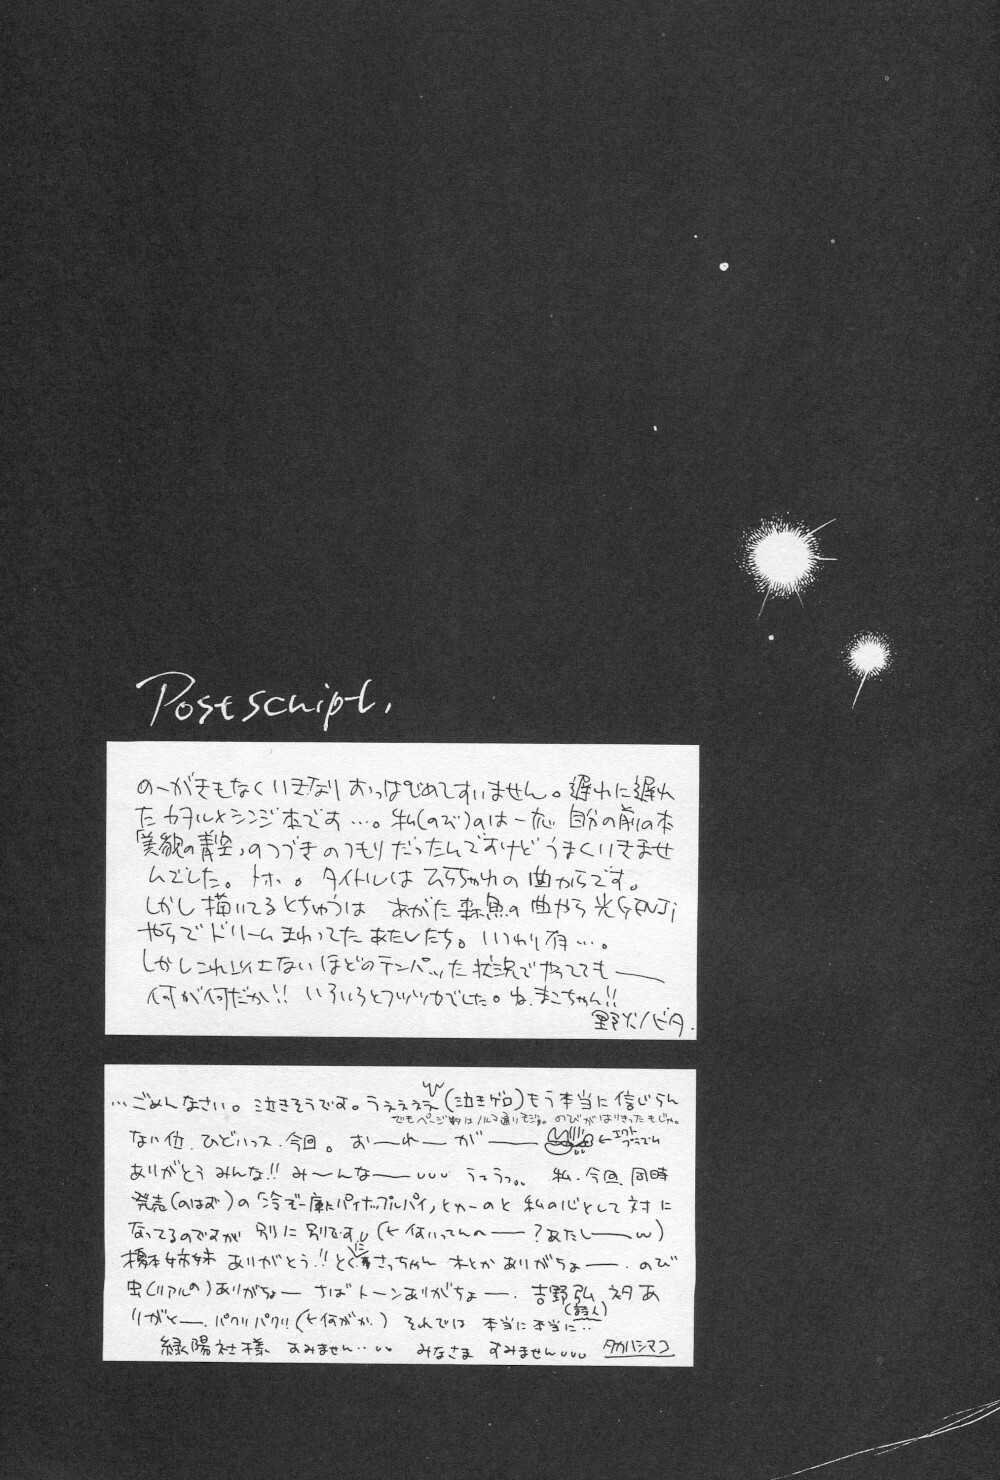 Postscript.
のーがきもなくいきなりおっぱじめてすいません。遅れに遅れ
たカヲル×シンジ本です…。私(のび)のは一応 自分の前の本
「美貌の青空」のつづきのつもりだったんですけどうまくいきませ
んでした。トホ。タイトルは の曲からです。
しかし描いてるとちゅうは あがた森魚の曲やら光GENJI
やらでドリームまわってたあたしたち。いつわり有…。
しかしこれ以上ないほどのテンパった状況でやってても——
何が何だか!! いろいろとフツツカでした。ね、まこちゃん!!
野火ノビタ.
…ごめんなさい。泣きそうです。うぇぇぇぇ(泣きゲロ)もう本当に信じらん
でもページ数はノルマ通りもじょ。のびががはりきったもじゃ。
ない位、ひどいっス、今回。お〜れ〜が—— ←エクト
プラズム
ありがとうみんな!! み〜んなー うっうっ。 私、今回、同時
発売(のはず)の「冷ぞー庫にパイナップルパイ」とかーのと 私の心として対に
なってるのですが 別に別です。(←何いってんべ——?あたし——)
橋本姉妹 ありがとう!!とくにさっちゃん ホとかありがちょー、のび
虫(リアルの)ありがちょー さばトーンありがちょー、吉野弘ネタあ
(詩人)
りがと—、パクリパクリ(←何がか) それでは 本当に本当に…
緑陽社様、すみません… みなさま すみません タカハシマコ